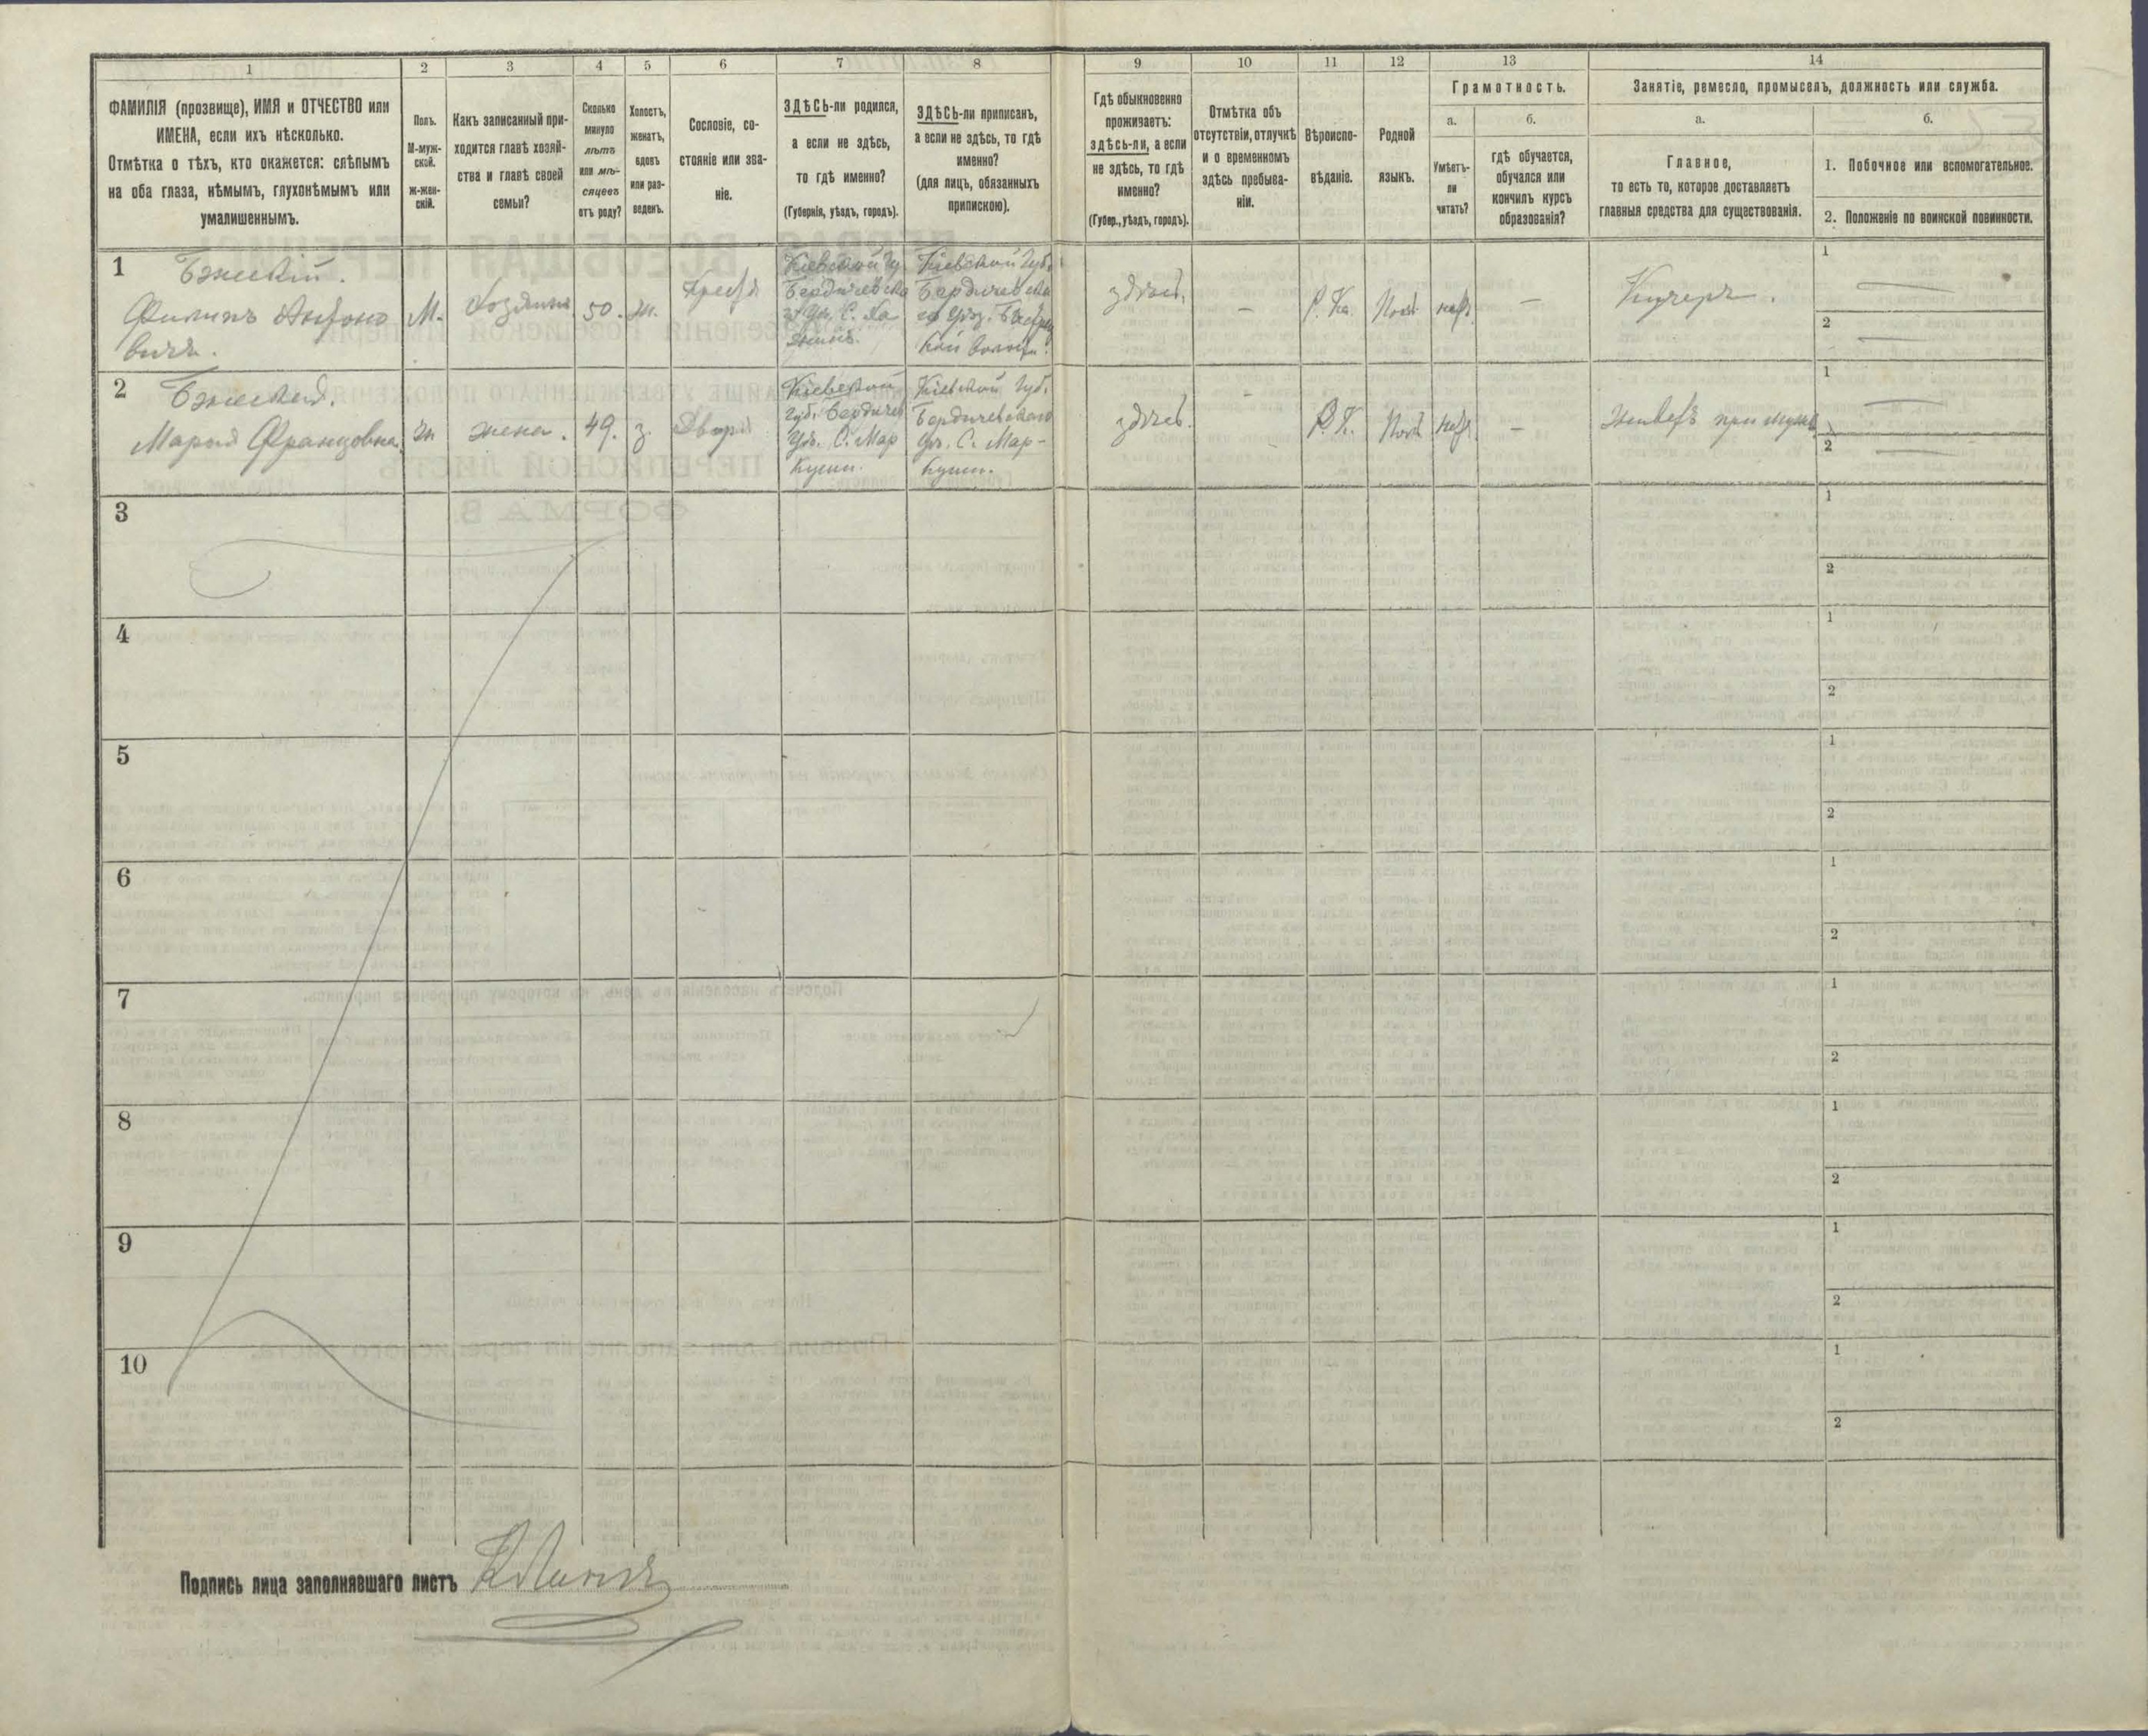 1
2
3
4
5
6
7
8
9
10
11
12
13
14
ФАМИЛІЯ (прозвище), ИМЯ и ОТЧЕСТВО или
ИМЕНА, если ихъ нѣсколько.
Отмѣтка о тѣхъ, кто окажется: слѣпымъ
на оба глаза, нѣмымъ, глухонѣмымъ или
умалишеннымъ.
Полъ.
М-муж-
ской.
ж-жен-
скій.
Какъ записанный при-
ходится главѣ хозяй-
ства и главѣ своей
семьи?
Сколько
минуло
лѣтъ
или мѣ-
сяцевъ
отъ роду?
Холостъ,
женатъ,
вдовъ
или раз-
веденъ.
Сословіе, со-
стояніе или зва-
ніе.
ЗДѢСЬ-ли родился,
а если не здѣсь,
то гдѣ именно?
(Губернія, уѣздъ, городъ).
ЗДѢСЬ-ли приписанъ,
а если не здѣсь, то гдѣ
именно?
(для лицъ, обязанныхъ
припискою).
Гдѣ обыкновенно
проживаетъ:
здѣсь-ли, а если
не здѣсь, то гдѣ
именно?
(Губер., уѣздъ, городъ).
Отмѣтка объ
отсутствіи, отлучкѣ
и о временномъ
здѣсь пребыва-
ніи.
Вѣроиспо-
вѣданіе.
Родной
языкъ.
Грамотность.
а.
Умѣетъ-
ли
читать?
б.
гдѣ обучается,
обучался или
кончилъ курсъ
образованія?
Занятіе, ремесло, промыселъ, должность или служба.
а.
Главное,
то есть то, которое доставляетъ
главныя средства для существованія.
б.
1. Побочное или вспомогательное.
2. Положеніе по воинской повинности.
1
Филипъ Антоно
вичъ.
М.
Хозяинъ
50.
ж.
Кіевской Гу
Бердичевска
Кіевской Губ.
Бердичевска
здѣсь.
–
Р. Ка.
–
Кучеръ.
1
2
2
Марья Францовна.
ж
жена.
49.
з.
Двор
Кіевской
Губ. Бердичев
Уѣз. С. Мар
куши.
Кіевской Губ.
Бердичевскаго
Уѣз. С. Мар-
куши.
здѣсь.
-
Р. К.
–
Живетъ при мужѣ
1
2
3
1
2
4
1
2
5
1
2
6
1
2
7
1
2
8
1
2
9
1
2
10
1
2
Подпись лица заполнявшаго листъ